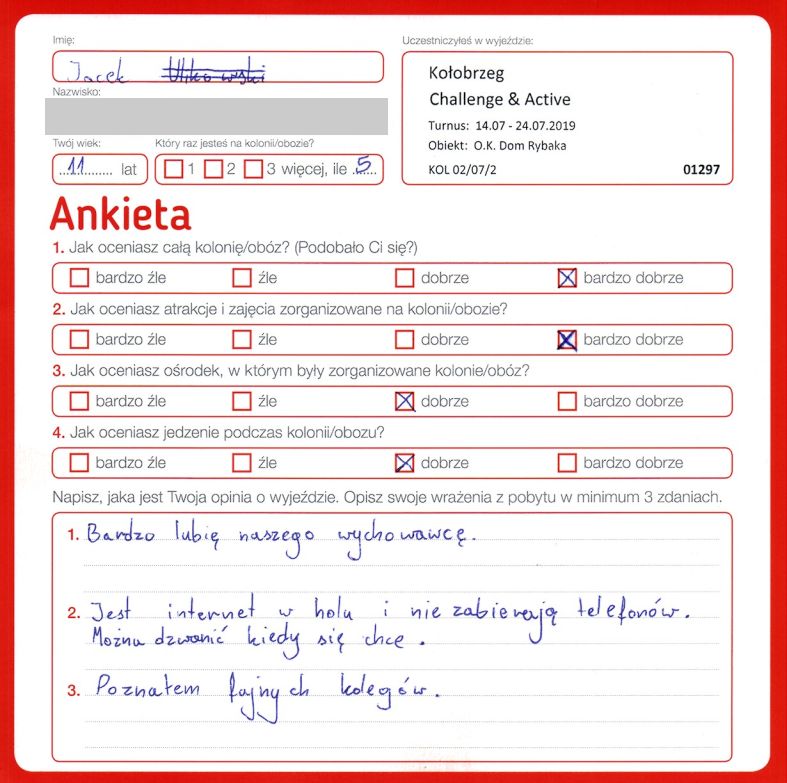 Imię:
Jacek
Nazwisko:
Twój wiek:
11 lat
Który raz jesteś na kolonii/obozie?
1 2 3 więcej, ile 5
Uczestniczyłeś w wyjeździe:
Kołobrzeg
Challenge & Active
Turnus: 14.07 - 24.07.2019
Obiekt: O.K. Dom Rybaka
KOL 02/07/2 01297
Ankieta
1. Jak oceniasz całą kolonię/obóz? (Podobało Ci się?)
bardzo źle źle dobrze bardzo dobrze
2. Jak oceniasz atrakcje i zajęcia zorganizowane na kolonii/obozie?
bardzo źle źle dobrze bardzo dobrze
3. Jak oceniasz ośrodek, w którym były zorganizowane kolonie/obóz?
bardzo źle źle dobrze bardzo dobrze
4. Jak oceniasz jedzenie podczas kolonii/obozu?
bardzo źle źle dobrze bardzo dobrze
Napisz, jaka jest Twoja opinia o wyjeździe. Opisz swoje wrażenia z pobytu w minimum 3 zdaniach.
1. Bardzo lubię naszego wychowawcę.
2. Jest internet w holu i nie zabierają telefonów.
Można dzwonić kiedy się chce.
3. Poznałem fajnych kolegów.